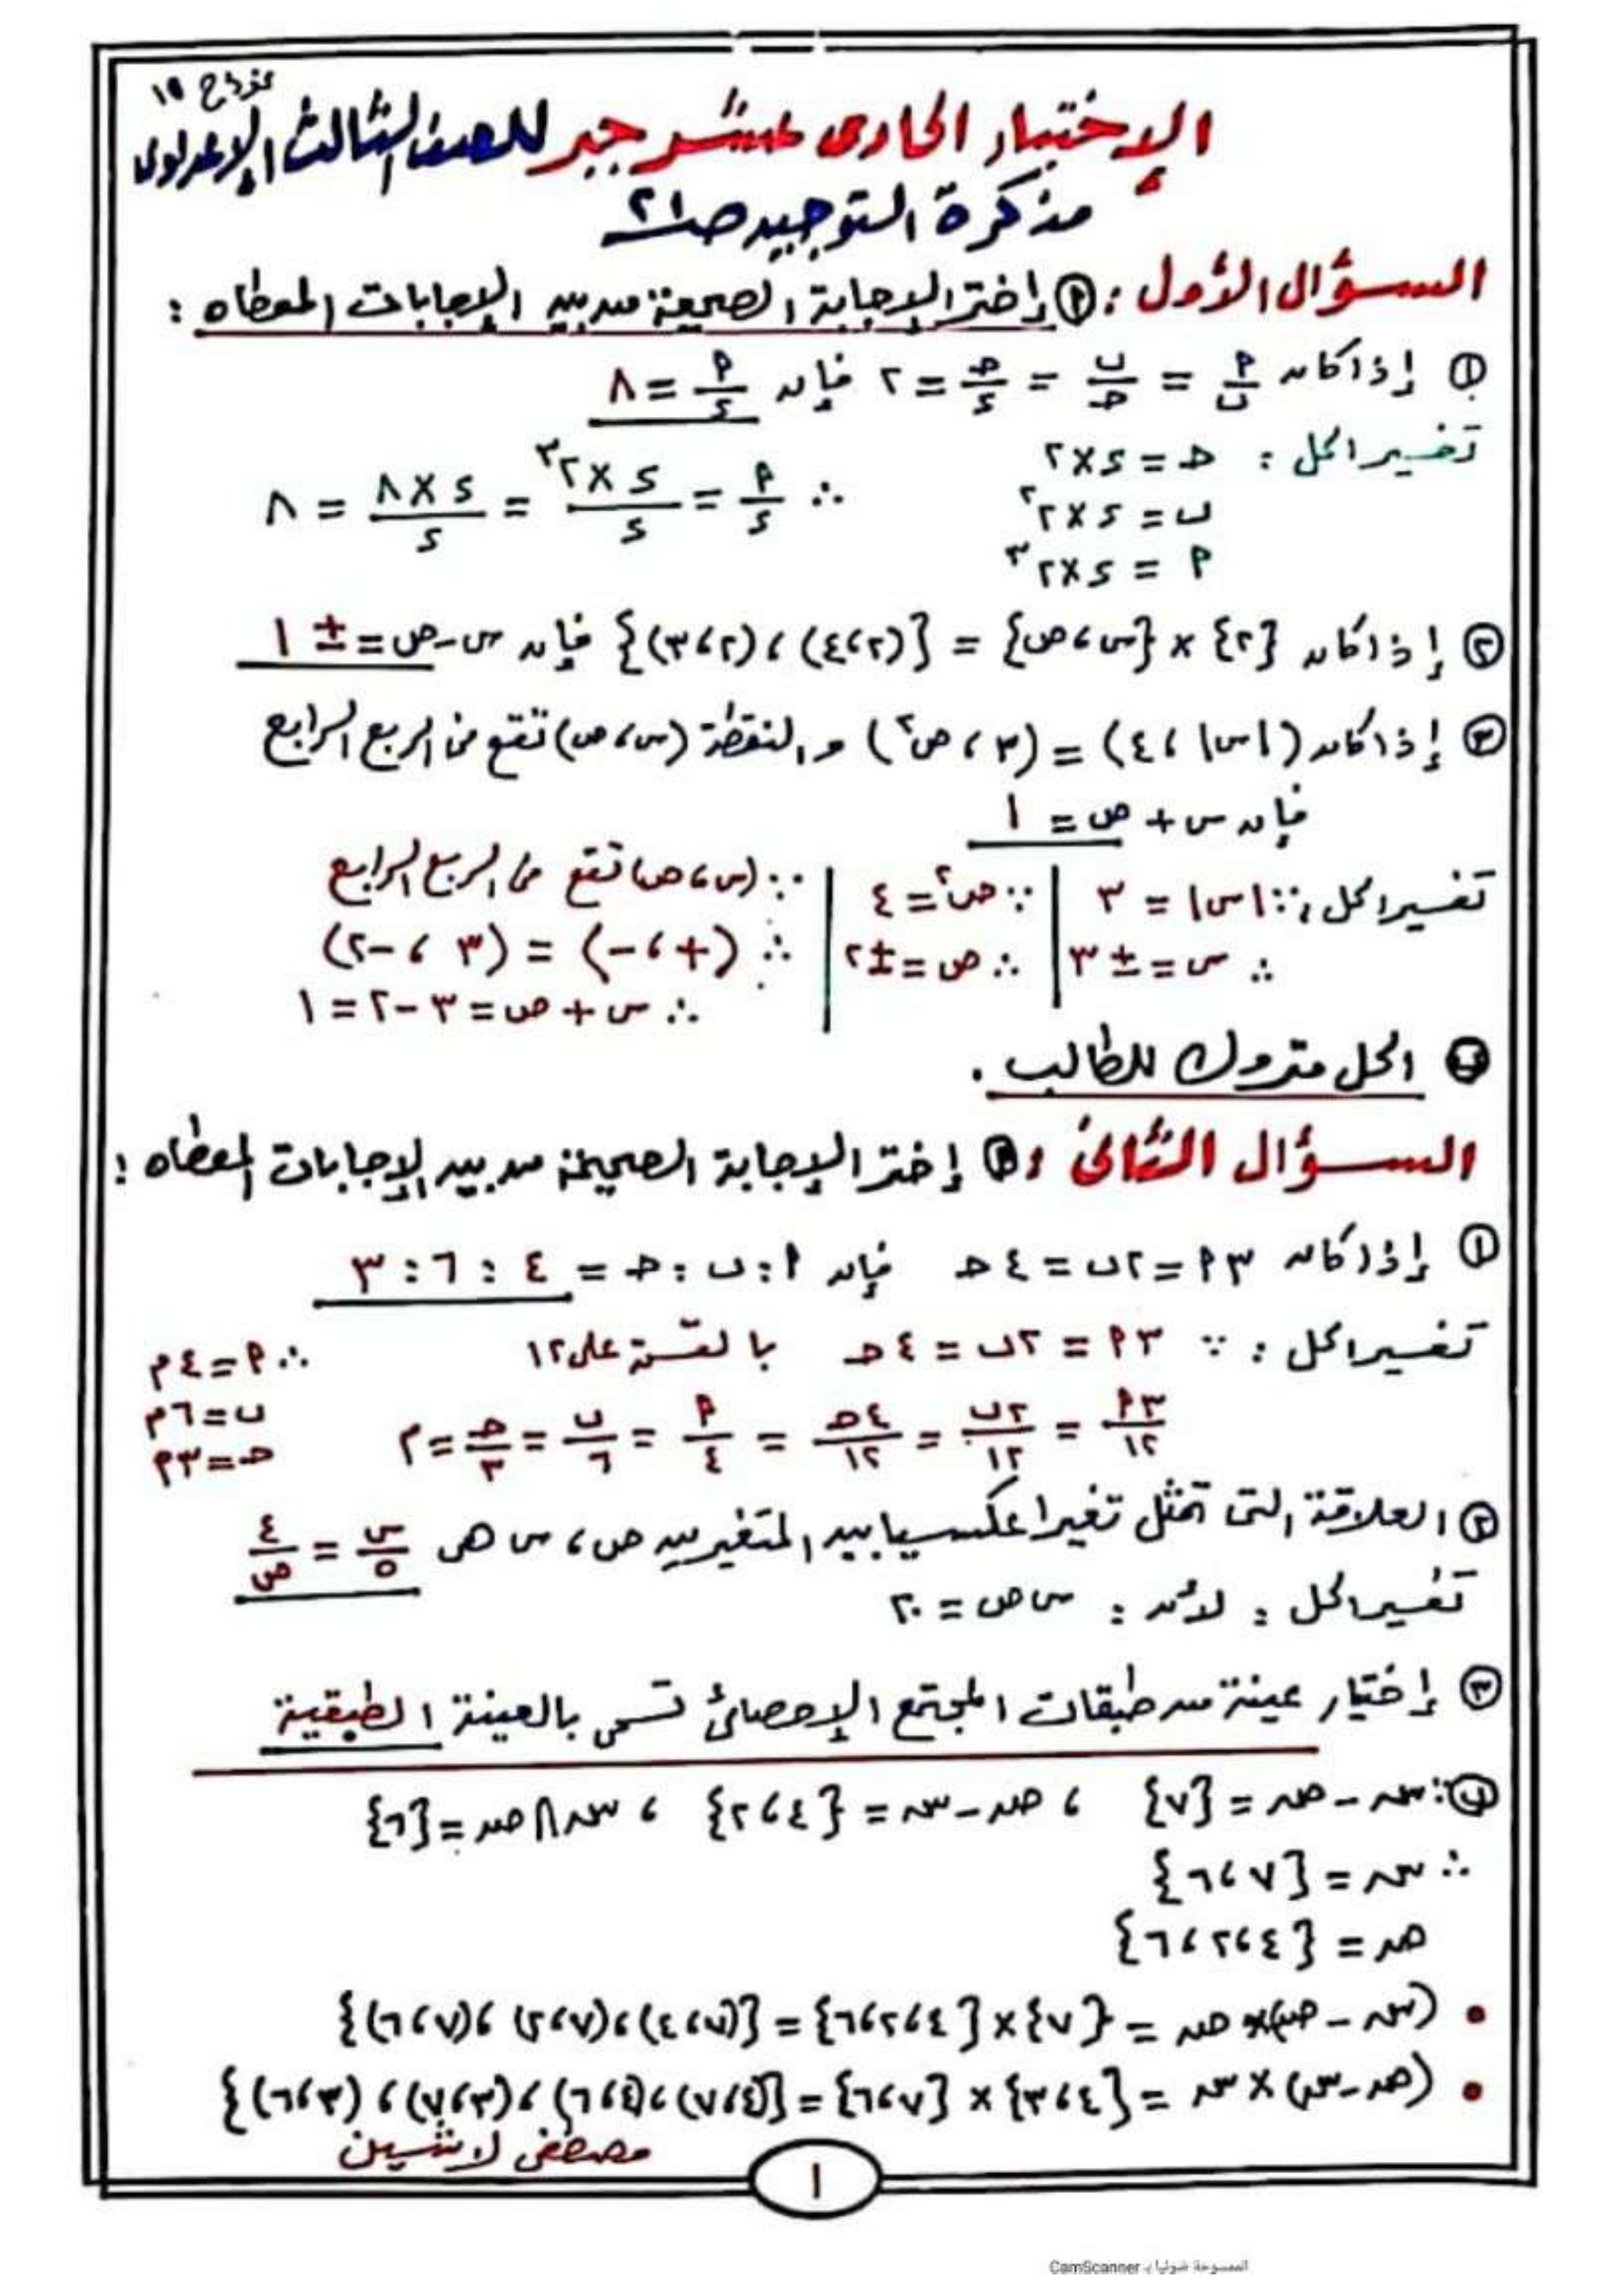 نموذج ١٩
الإختبار الحادى عشر جبر للصف الثالث الإعدادى
مذكرة التوجيه صـ ٢١
السؤال الأول : (أ) إختر الإجابة الصحيحة من بين الإجابات المعطاه :
(١) إذا كان أ/ب = ب/جـ = جـ/د = ٢ فإن أ/د = ٨
تفسير الحل : جـ = د×٢
ب = د×٢^٢
أ = د×٢^٣
∴ أ/د = د×٢^٣/د = د×٨/د = ٨
(٢) إذا كان {٢} × {س ، ص} = {(٢،٤) ، (٢،٣)} فإن س-ص = ± ١
(٣) إذا كان (|س| ، ٤) = (٣ ، ص^٢) والنقطة (س ، ص) تقع فى الربع الرابع
فإن س + ص = ١
تفسير الحل : ∵ |س| = ٣
∴ س = ± ٣
∵ ص^٢ = ٤
∴ ص = ± ٢
∵ (س ، ص) تقع فى الربع الرابع
∴ (+ ، -) = (٣ ، -٢)
∴ س + ص = ٣ - ٢ = ١
(ب) الحل متروك للطالب .
السؤال الثانى : (أ) إختر الإجابة الصحيحة من بين الإجابات المعطاه :
(١) إذا كان ٣أ = ٢ب = ٤جـ فإن أ : ب : جـ = ٤ : ٦ : ٣
تفسير الحل : ∵ ٣أ = ٢ب = ٤جـ بالقسمة على ١٢
٣أ/١٢ = ٢ب/١٢ = ٤جـ/١٢ = أ/٤ = ب/٦ = جـ/٣ = م
∴ أ = ٤م
ب = ٦م
جـ = ٣م
(٢) العلاقة التى تمثل تغيرا عكسيا بين المتغيرين ص ، س هى س/٥ = ٤/ص
تفسير الحل : لأن : س ص = ٢٠
(٣) إختيار عينة من طبقات المجتمع الإحصائى تسمى بالعينة الطبقية
(ب) : سـ - صـ = {٧} ، صـ - سـ = {٤،٢} ، سـ ∩ صـ = {٦}
∴ سـ = {٧ ، ٦}
صـ = {٤،٢ ، ٦}
• (سـ - صـ) × صـ = {٧} × {٤،٢،٦} = {(٧،٤) ، (٧،٢) ، (٧،٦)}
• (صـ - سـ) × سـ = {٤،٣} × {٧،٦} = {(٤،٧) ، (٤،٦) ، (٣،٧) ، (٣،٦)}
مصطفى لاشين
١
الممسوحة ضوئيا بـ CamScanner